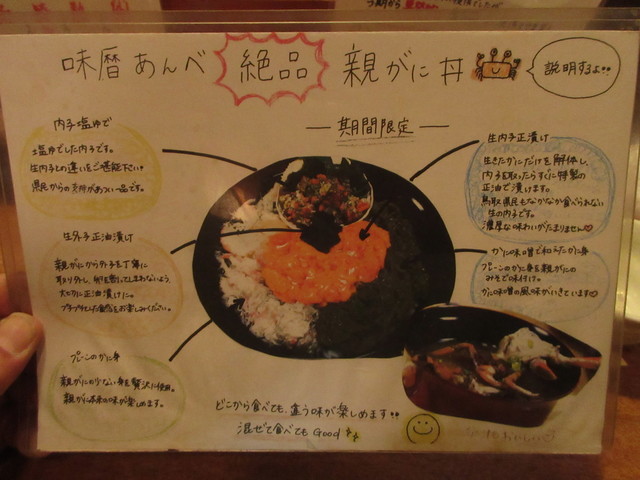 味暦あんべ 絶品 親がに丼
説明するよ!!
期間限定
内子塩ゆで
塩ゆでした内子です。
生内子との違いをご堪能下さい。
県民からの支持があつい一品です。
生外子正油漬け
親がにから外子を丁寧に
取り外し、卵を割ってしまわないよう、
大切に正油漬けに。
プチプチした食感をお楽しみください。
プレーンのかに身
親がにの少ない身を贅沢に使用。
親がに本来の味が楽しめます。
生内子正油漬け
生きたかにだけを解体し、
内子を取ったらすぐに特製の
正油で漬けます。
鳥取県民もなかなか食べられない
生の内子です。
濃厚な味わいがたまりません♡
かに味噌で和えたかに身
プレーンのかに身を親がにの
みそで味付け。
かに味噌の風味がいきています♡
どこから食べても、違う味が楽しめます!!
混ぜて食べても Good